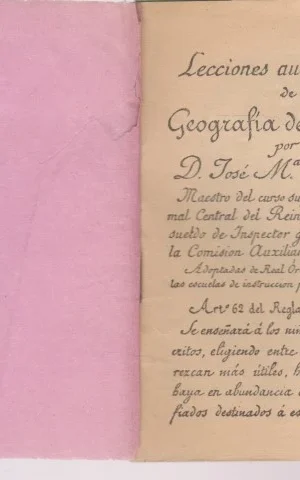 Lecciones au
de
Geografía de
por
D. José M.ª
Maestro del curso su
mal Central del Rein
sueldo de Inspector g
la Comision Auxilia
Adoptadas de Real Or
las escuelas de instruccion p
Artº 62 del Regla
Se enseñará á los niñ
critos, eligiendo entre
rezcan más útiles, h
baya en abundancia
fiados destinados á es